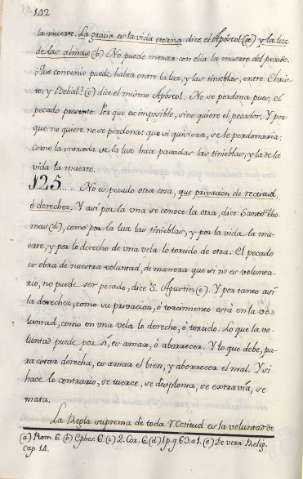 102
la muerte. La gracia es la vida eterna dice el Apóstol (a) y la luz
de las almas (b) No puede morar con ella la muerte del pecado.
Que convenio puede haber entre la luz, y las tinieblas, entre Chris-
to, y Belial? (c) dice el mismo Apóstol. No se perdona pues, el
pecado presente. Por que es imposible, si no quiere el pecador. Y por
que no quiere no se perdona: que si quisiera, se le perdonaria:
como la venida de la luz hace pasadas las tinieblas, y la de la
vida la muerte.
125... No es pecado otra cosa, que privacion de rectitud,
ó derechez. Y asi por la una se conoce la otra, dice Santo Tho
mas (d), como por la luz las tinieblas, y por la vida la mu-
erte, y por lo derecho de una vela lo torcido de otra. El pecado
es obra de nuestra voluntad, de manera que si no es volunta-
rio, no puede ser pecado, dice S. Agustin (e). Y por tanto asi
la derechez, como su privacion, ó torcimiento está en la vo-
luntad, como en una vela lo derecho, ó torcido. Lo que la vo-
luntad puede por sí, es amar, ó aborrecer. Y lo que debe, pa-
ra estar derecha, es amar el bien, y aborrecer el mal. Y si
hace lo contrario, se tuerce, se desploma, se extravía, se
mata.
La Regla suprema de toda rectitud es la voluntad de
(a) Rom. 6. (b) Ephes. 6. (c) 2. Cor. 6. (d) 1 p. q 63. a 1. (e) De vera Relig.
Cap. 14.